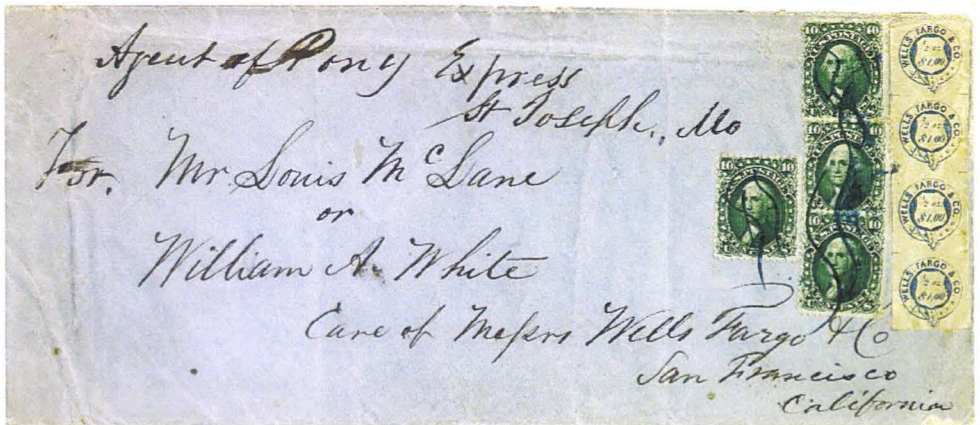 Agent of Pony Express
St Joseph, Mo
For. Mr Louis McLane
or
William A. White
Care of Messrs Wells Fargo & Co
San Francisco
California
10 10
U.S. POSTAGE
10 10
10 10
10 10
WELLS FARGO & CO.
½ oz.
$1,00
WELLS FARGO & CO.
½ oz.
$1,00
WELLS FARGO & CO.
½ oz.
$1,00
WELLS FARGO & CO.
½ oz.
$1,00